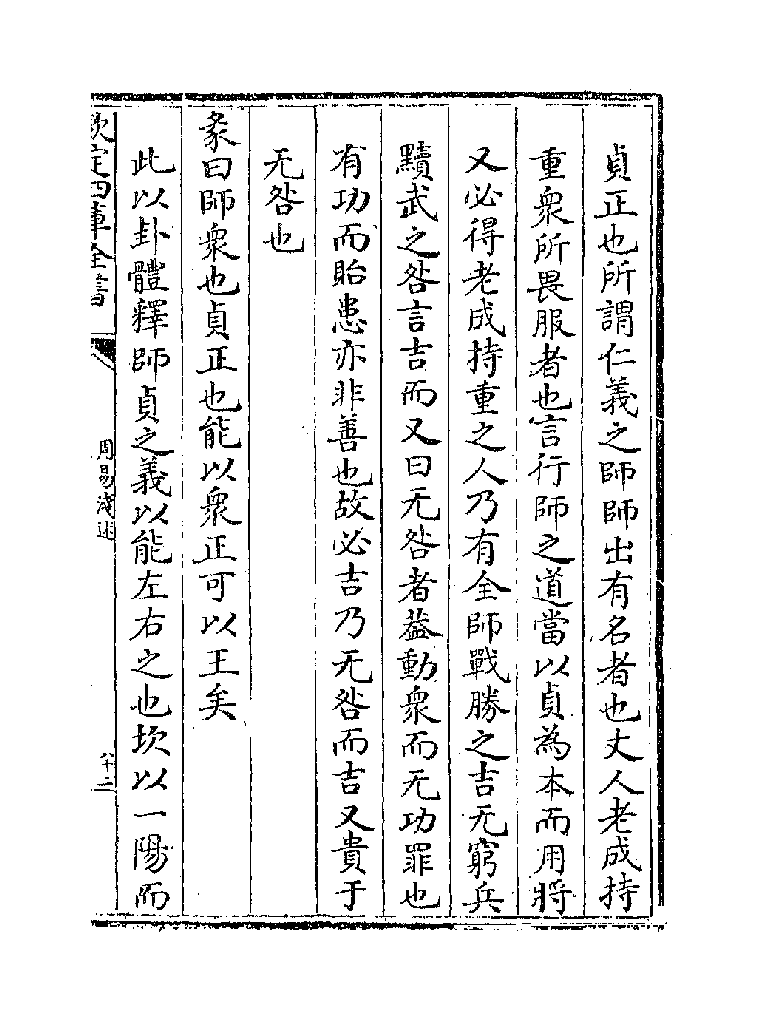 貞正也所謂仁義之師師出有名者也丈人老成持
重衆所畏服者也言行師之道當以貞為本而用將
又必得老成持重之人乃有全師戰勝之吉无窮兵
黷武之咎言吉而又曰无咎者葢動衆而无功罪也
有功而貽患亦非善也故必吉乃无咎而吉又貴于
无咎也
彖曰師衆也貞正也能以衆正可以王矣
此以卦體釋師貞之義以能左右之也坎以一陽而
欽定四庫全書
周易淺述
八十二